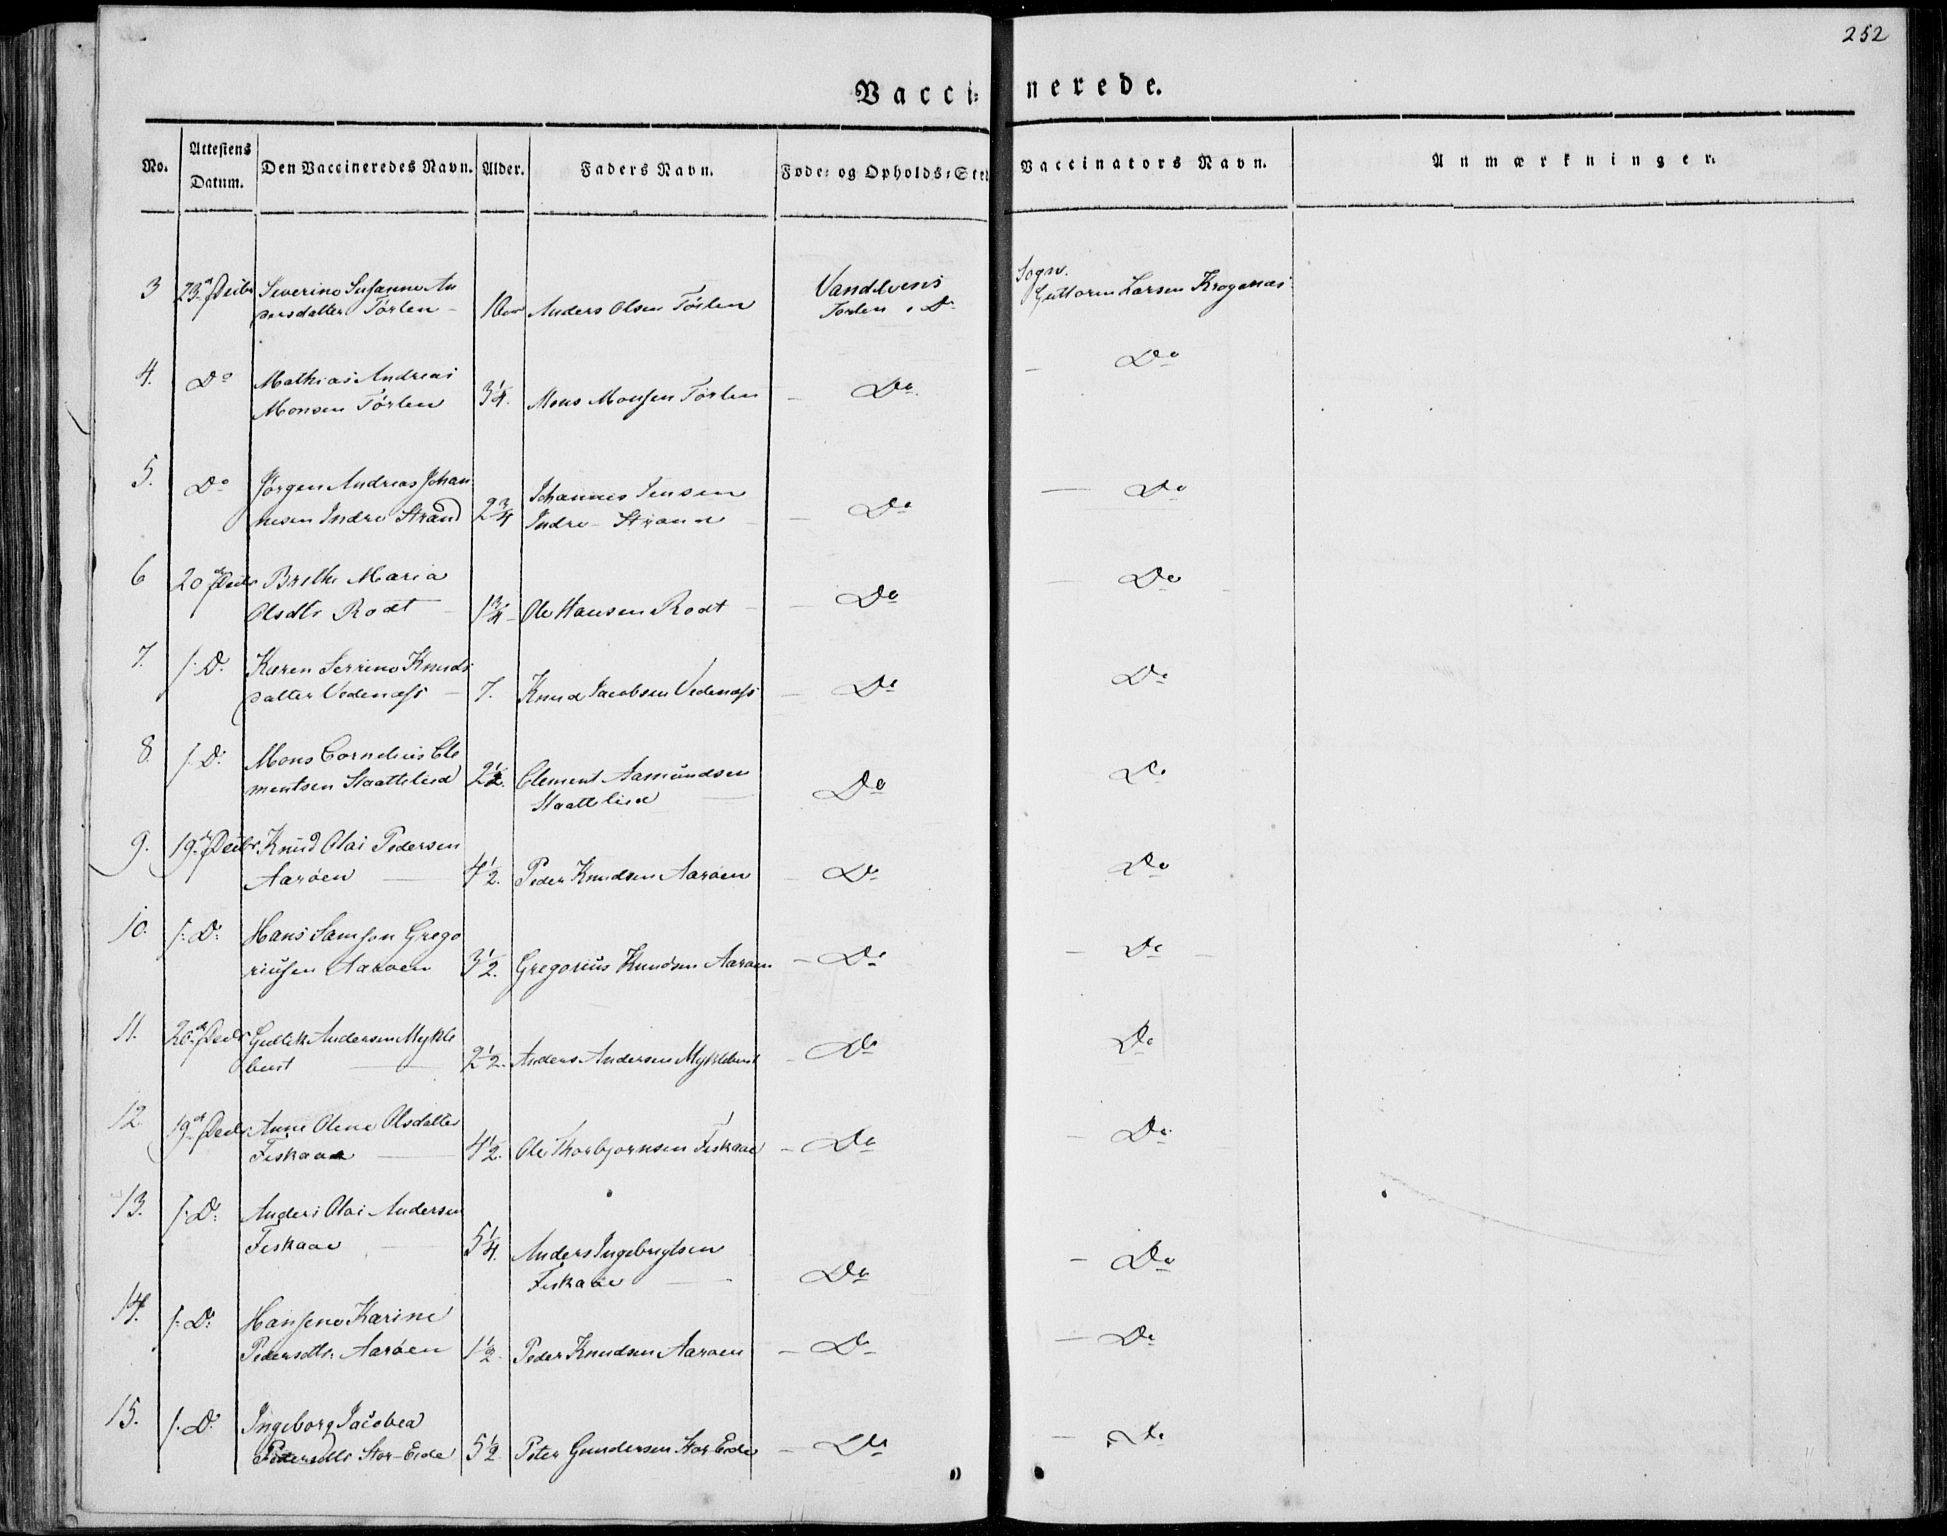 252
Vacci- nerede.
No. Attestens Datum. Den Vaccineredes Navn. Alder. Faders Navn. Føde- og Opholds-Sted Vaccinators Navn. Anmærkninger.
Vandelvens Sogn.
3 23de Decbr Severine Susanne An
dersdatter Tørlen 10 Anders Olsen Tørlen Torlen i Do Guttorm Larsen Krogenæs
4. Do Mathias Andreas
Monsen Tørlen 3 1/4. Mons Monsen Tørlen Do Do
5. Do Jørgen Andreas Johan
nesen Indre Strand 2 3/4 Johannes Jensen
Indre Strand Do Do
6 20de Decbr Brithe Maria
Olsdtr Rodt 1 3/4 Ole Hansen Rodt Do Do
7. f: D. Karen Serrine Knuds
datter Vedenæss 7. Knud Jacobsen Vedenæss Do Do
8. f: D: Mons Cornelius Cle
mentsen Staattelied 2 1/2. Clement Aamundsen
Staattelied Do Do
9. 19de Decbr. Knud Olai Pedersen
Aarøen 4 1/2. Peder Knudsen Aarøen Do Do
10. f: D: Hans Samson Grego
riusen Aarøen 3 1/2. Gregorius Knudsen Aarøen Do Do
11. 20de Decbr Gullik Andersen Mykle
bust 2 1/2. Anders Andersen Myklebust Do Do
12 19de Decbr Anne Olene Olsdatter
Fiskaae 4 1/2. Ole Thorbjørnsen Fiskaae Do Do
13. f: D: Anders Olai Andersen
Fiskaae 5 1/4. Anders Ingebrigtsen
Fiskaae Do Do
14. f: D: Hansene Karine
Pedersdtr: Aarøen 1 1/2 Peder Knudsen Aarøen Do Do
15. f: D: Ingeborg Jacobea
Pedersdtr Stor-Eide 5 1/2 Peter Gundersen Stor Eide Do Do